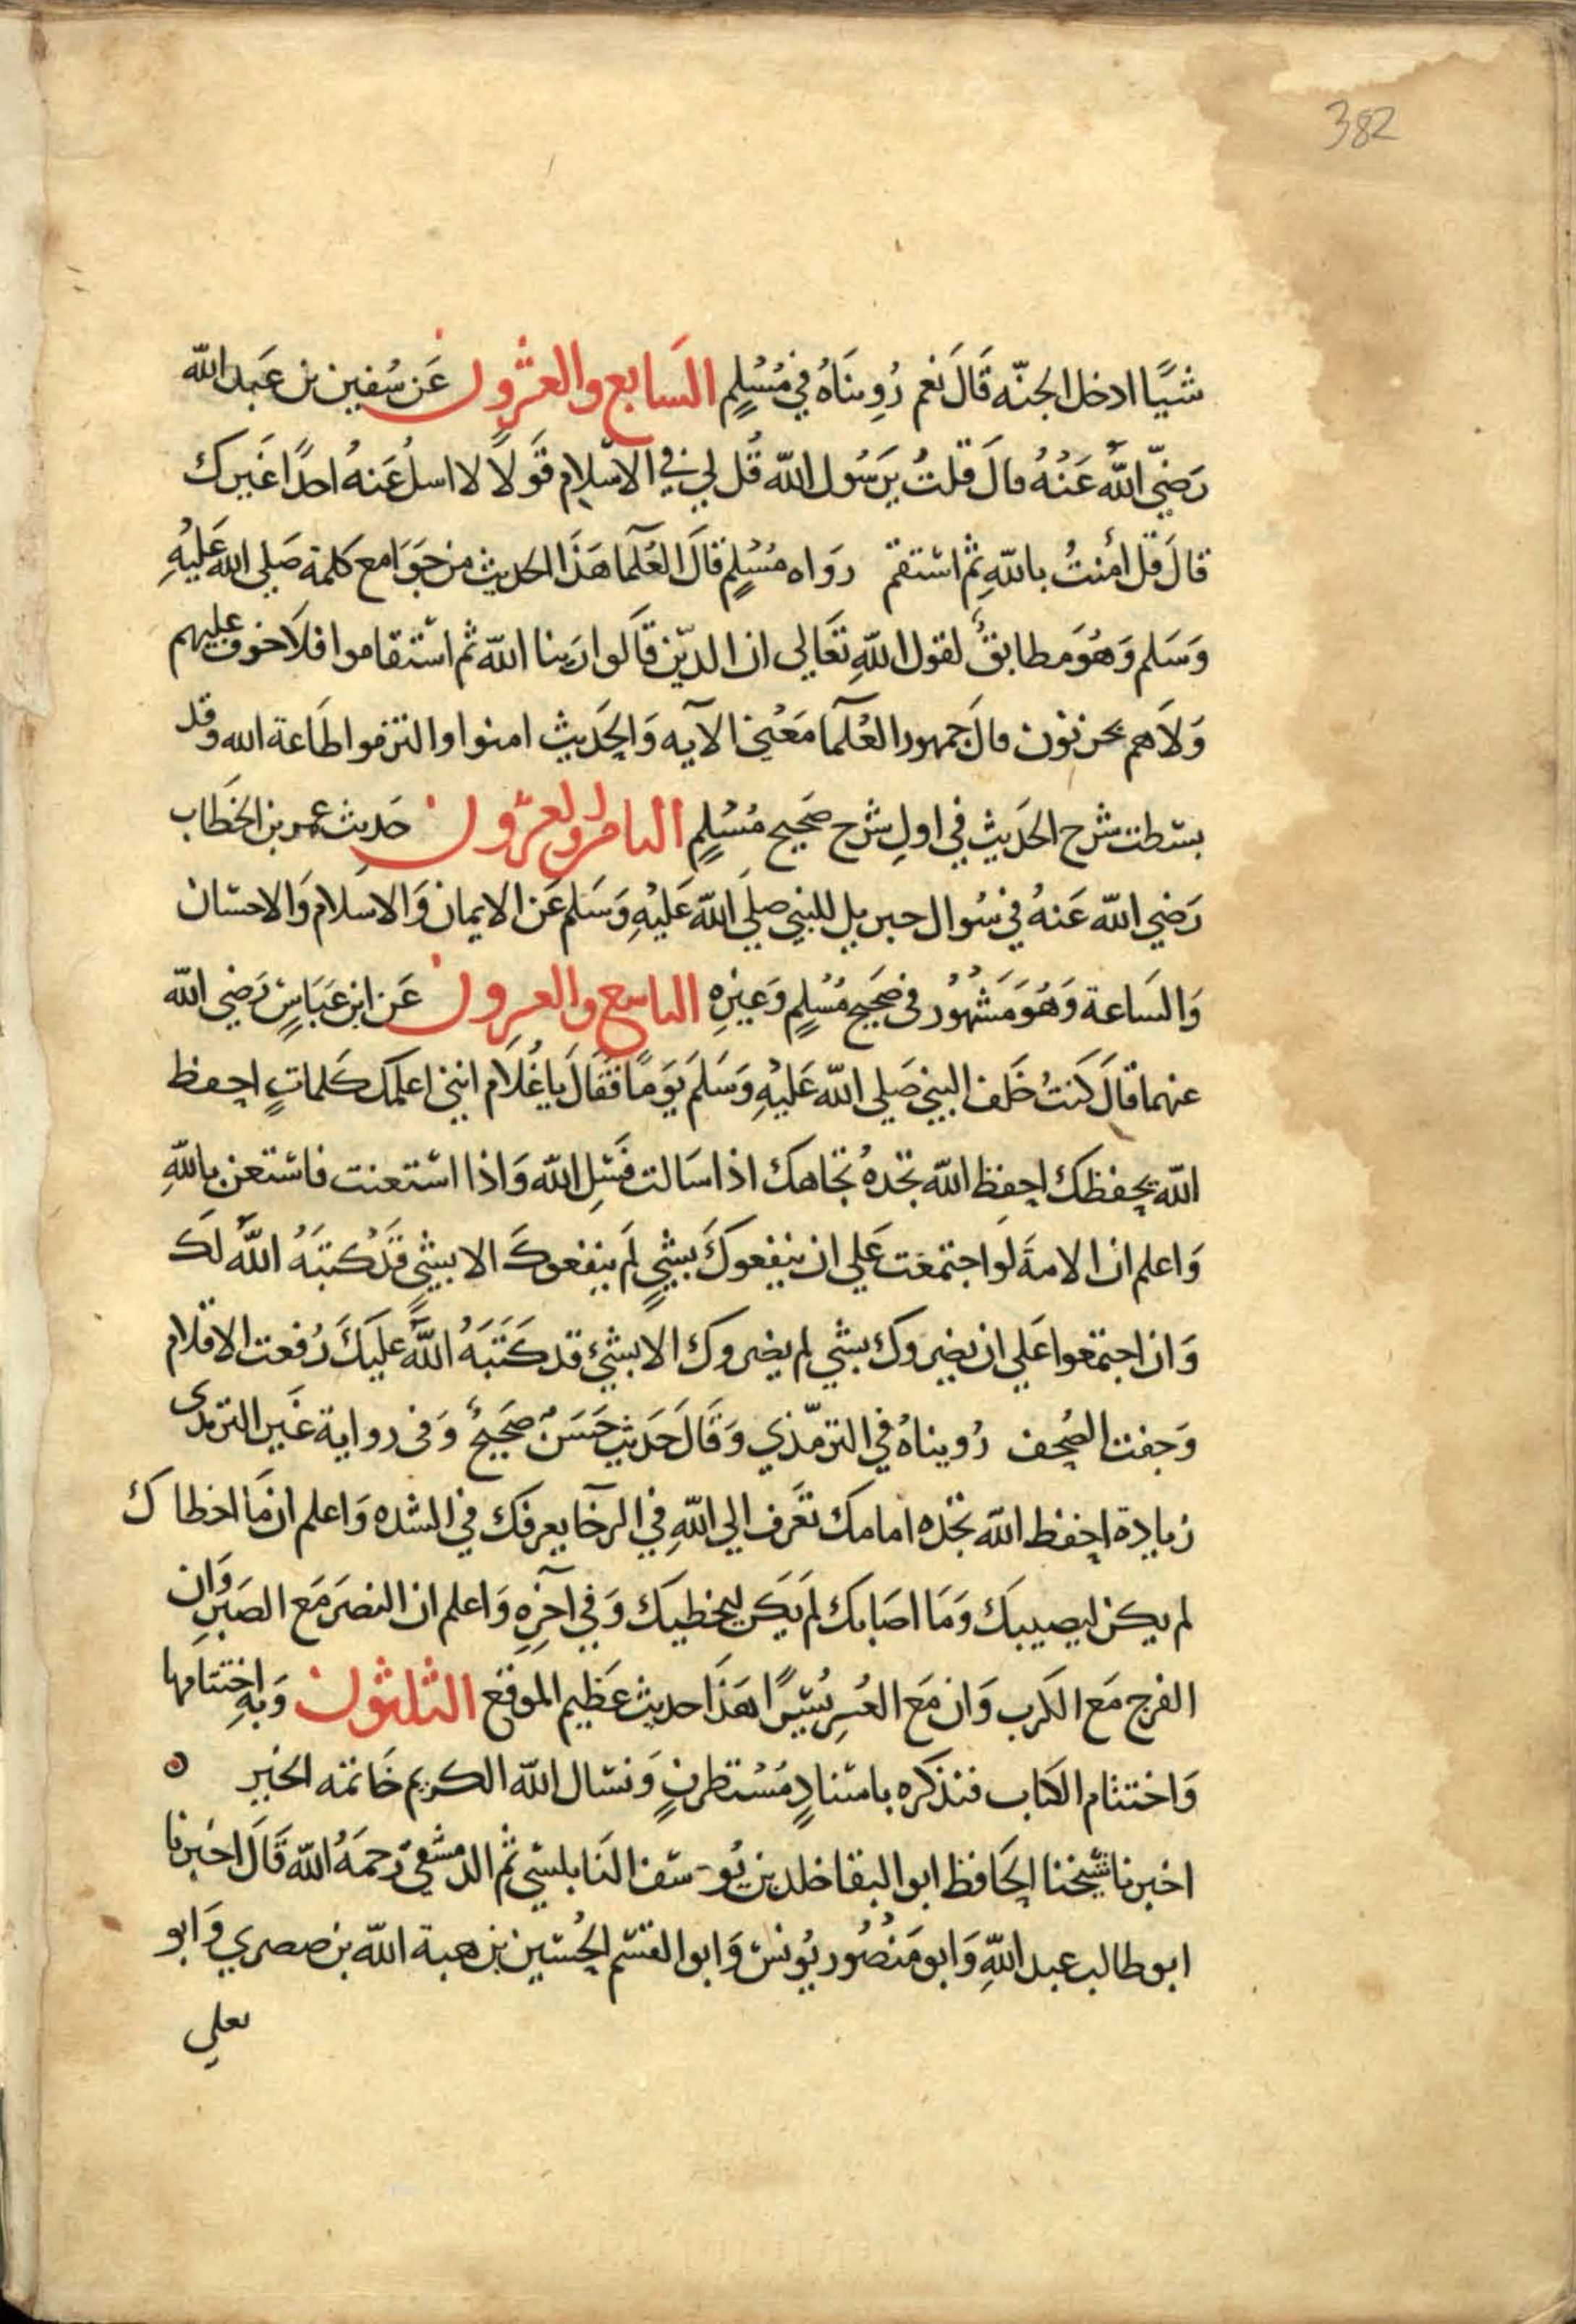 382
شيًا ادخل الجنّه قَالَ نَعم رُوِينَاهُ في مُسْلِمٍ السَابع والعشرون عَن سُفين بن عَبد الله
رَضِيّ اللَّهُ عَنْهُ قالَ قلتُ يَرَسُول الله قُل لِي في الاسْلامِ قَولاً لا اسلُ عَنهُ احدًا غَيرك
قالَ قل اٰمنتُ باللهِ ثم استقم رَواه مُسْلِمٍ قالَ العُلَمَا هَذَا الحديث من جَوَامع كَلمة صَلي الله عَليْهِ
وَسَلم وَهُوَ مطابقٌ لقول اللهِ تَعَالي ان الدّين قَالوا رَبنا اللهُ ثم اسْتقاموا فلاَ خوف عليهم
وَلاَهم يحزنوُن قالَ جمهور العُلَمَا مَعْني الآيه وَالحَديث امنوا والتزموا طَاعة الله وقد
بسَطت شرح الحَديث في اولِ شرح صَحِيح مُسْلِمٍ الثامن والعشرون حَديث عمر بن الخَطاب
رَضِي الله عَنهُ في سُوال جبريل للنبي صلي الله عَليْهِ وَسَلم عَن الايمان وَالاسلام وَالاحسَان
وَالسَاعة وَهُوَ مَشْهُوْر في صَحِيح مُسْلِمٍ وَغيرِهِ التاسع والعشرون عَن ابن عَبَاسٍ رَضي الله
عنهما قالَ كَنتُ خَلف النبي صَلي الله عَليْهِ وَسَلمَ يَومًا فَقَالَ يَا غُلَام انني اعلمك كَلماتٍ احفظ
الله يحفظك احفظ الله تجَدهُ تجاهك اذا سَالت فَسَل الله وَاذا استعنت فاستعن باللهِ
وَاعلم ان الامةَ لَو اجتمعَت عَلي ان ينفعوكَ بشيٍ لم ينفعوكَ الا بشي قَدْ كتبَهُ اللَّه لَك
وَان اجتمعوا عَلي ان يضروك بشي لم يضروك الا بشئ قد كَتَبَهُ اللَّه عَليكَ رُفعت الاقلام
وَجفت الصُحف رُويناهُ في الترمّذي وَقَالَ حَديث حَسَنٌ صَحِيحٌ وَفي رواية غَير الترمدى
زيادة احفظ الله تجَده امامك تعَرف الي اللهِ في الرخَا يعرفك في الشده وَاعلم ان مَا اخطاك
لم يكن ليصيبكَ وَمَا اصَابك لم يَكَن ليخطيك وَفي آخِرِهِ وَاعلم ان النصرَ مَع الصَبرِ وَان
الفرج مَع الكَرب وَان مَع العُسرِ يُسرًا هَذَا حديث عَظيم الموقع الثلثون وَبه اختتامها
وَاختتام الكتاب فنذكره باسنادٍ مُسْتطرفٍ وَنسَال الله الكريم خَاتمه الخَير ه
اخبرنا شيخنا الحَافظ ابوا البقا خلد بن يُوسَف النَابلسي ثم الدمشقي رَحمَهُ الله قَالَ اخبرنا
ابو طالب عبد اللهِ وَابو مَنصُور يوُنس وَابوا القسَم الحُسَين بن هبة الله بن صصري وَابو
يعلي